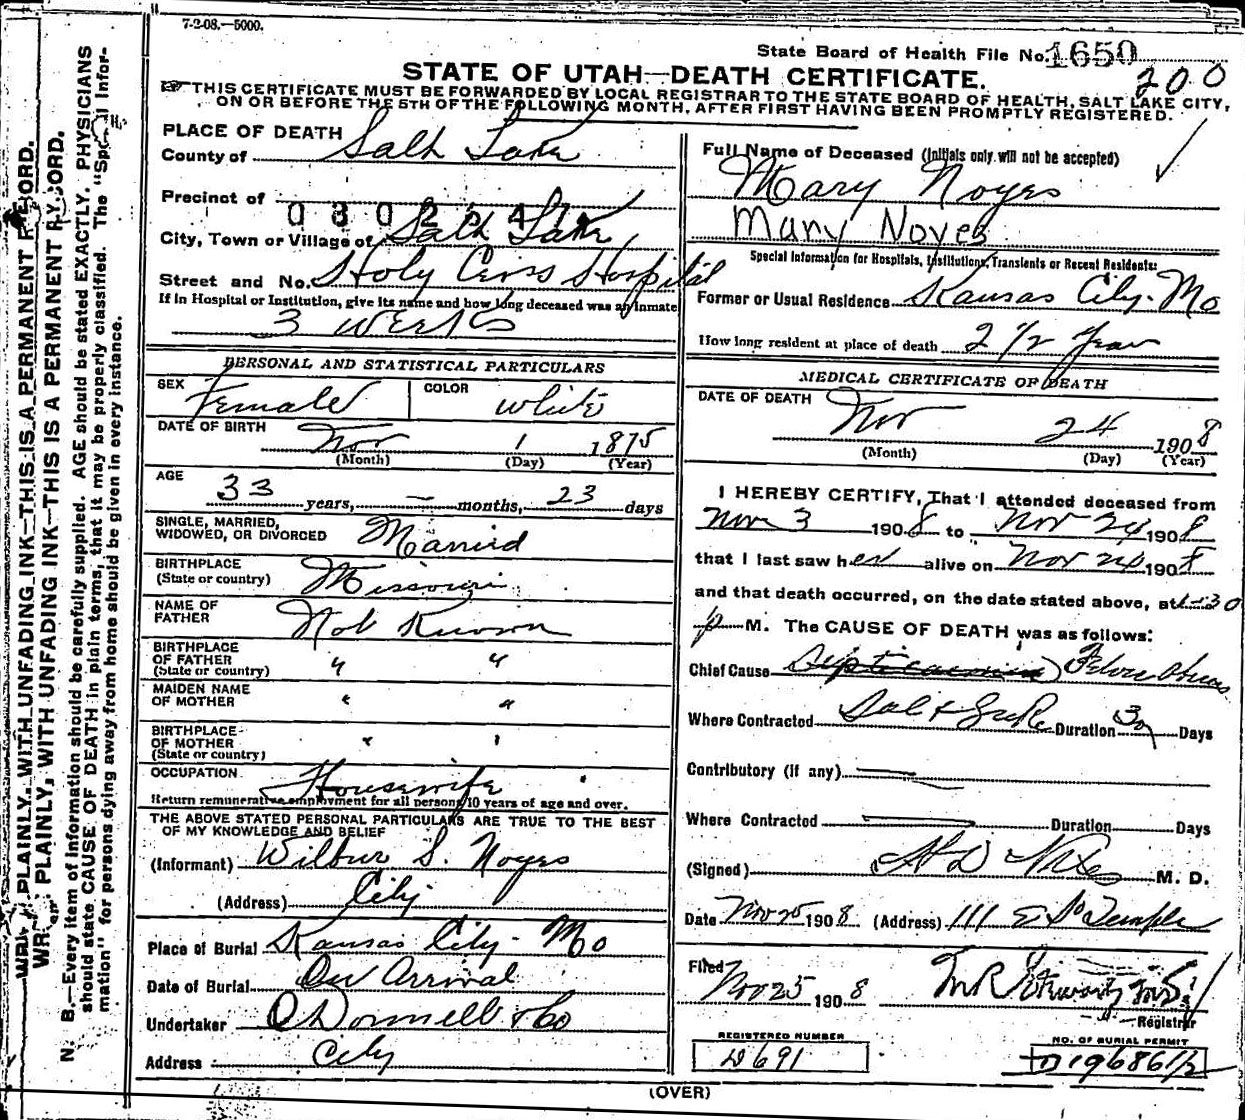 7-2-08.—5000.
State Board of Health File No. 1650
200
STATE OF UTAH—DEATH CERTIFICATE.
THIS CERTIFICATE MUST BE FORWARDED BY LOCAL REGISTRAR TO THE STATE BOARD OF HEALTH, SALT LAKE CITY,
ON OR BEFORE THE 5TH OF THE FOLLOWING MONTH, AFTER FIRST HAVING BEEN PROMPTLY REGISTERED.
WRITE PLAINLY, WITH UNFADING INK—THIS IS A PERMANENT RECORD.
WRITE PLAINLY, WITH UNFADING INK—THIS IS A PERMANENT RECORD.
N. B.—Every item of information should be carefully supplied. AGE should be stated EXACTLY. PHYSICIANS
should state CAUSE OF DEATH in plain terms, that it may be properly classified. The "Special Infor-
mation" for persons dying away from home should be given in every instance.
PLACE OF DEATH
County of Salt Lake
Precinct of
City, Town or Village of Salt Lake
Street and No. Holy Cross Hospital
If in Hospital or Institution, give its name and how long deceased was an inmate
3 weeks
PERSONAL AND STATISTICAL PARTICULARS
SEX Female COLOR White
DATE OF BIRTH Nov 1 1875
(Month) (Day) (Year)
AGE 33 years, — months, 23 days
SINGLE, MARRIED,
WIDOWED, OR DIVORCED Married
BIRTHPLACE
(State or country) Missouri
NAME OF
FATHER Not Known
BIRTHPLACE
OF FATHER " "
(State or country)
MAIDEN NAME
OF MOTHER " "
BIRTHPLACE
OF MOTHER " "
(State or country)
OCCUPATION Housewife
Return remunerative employment for all persons 10 years of age and over.
THE ABOVE STATED PERSONAL PARTICULARS ARE TRUE TO THE BEST
OF MY KNOWLEDGE AND BELIEF
(Informant) Wilbur S. Noyes
(Address) City
Place of Burial Kansas City - Mo
Date of Burial On Arrival
Undertaker O Donnell & Co
Address City
Full Name of Deceased (Initials only will not be accepted)
Mary Noyes
Mary Noyes
Special Information for Hospitals, Institutions, Transients or Recent Residents:
Former or Usual Residence Kansas City - Mo
How long resident at place of death 2 1/2 Year
MEDICAL CERTIFICATE OF DEATH
DATE OF DEATH Nov 24 1908
(Month) (Day) (Year)
I HEREBY CERTIFY, That I attended deceased from
Nov 3 1908 to Nov 24 1908
that I last saw her alive on Nov 24 1908
and that death occurred, on the date stated above, at 1-30
p M. The CAUSE OF DEATH was as follows:
Chief Cause Septicaemia
Where Contracted Duration Days
Contributory (if any)
Where Contracted Duration Days
(Signed) M. D.
Date Nov 25 1908 (Address) 111 E So Temple
Filed Nov 25 1908
Registrar
REGISTERED NUMBER
D691
NO. OF BURIAL PERMIT
D 19686 1/2
(OVER)